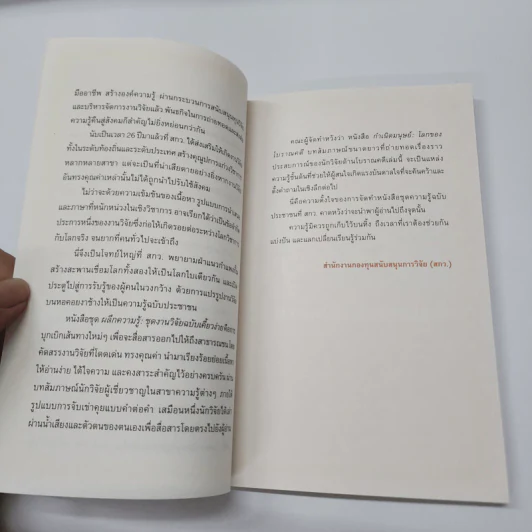 มืออาชีพ สร้างองค์ความรู้ ผ่านกระบวนการสนับสนุนทุนวิจัย
และบริหารจัดการงานวิจัยแล้ว พันธกิจในการถ่ายทอดและส่งต่อ
ความรู้คืนสู่สังคมก็สำคัญไม่ยิ่งหย่อนกว่ากัน
นับเป็นเวลา 26 ปีมาแล้วที่ สกว. ได้ส่งเสริมให้เกิดงานวิจัย
ทั้งในระดับท้องถิ่นและระดับประเทศ สร้างคุณูปการแก่วงวิชาการ
หลากหลายสาขา แต่จะเป็นที่น่าเสียดายอย่างยิ่งหากงานวิจัย
อันทรงคุณค่าเหล่านั้นไม่ได้ถูกนำไปรับใช้สังคม
ไม่ว่าจะด้วยความเข้มข้นของเนื้อหา รูปแบบการนำเสนอ
และภาษาที่หนักหน่วงในเชิงวิชาการ อาจเรียกได้ว่าเป็น
ประการหนึ่งของงานวิจัยซึ่งก่อให้เกิดรอยต่อระหว่างโลกวิชาการ
กับโลกจริง จนยากที่คนทั่วไปจะเข้าถึง
นี่จึงเป็นโจทย์ใหญ่ที่ สกว. พยายามฝ่าแนวกำแพง
สร้างสะพานเชื่อมโลกทั้งสองให้เป็นโลกใบเดียวกัน และเปิด
ประตูไปสู่การรับรู้ของผู้คนในวงกว้าง ด้วยการแปรรูปงานวิจัย
บนหอคอยงาช้างให้เป็นความรู้ฉบับประชาชน
หนังสือชุด ผลึกความรู้: ชุดงานวิจัยฉบับเคี้ยวง่าย คือการ
บุกเบิกเส้นทางใหม่ๆ เพื่อจะสื่อสารออกไปให้ถึงสาธารณชน โดย
คัดสรรงานวิจัยที่โดดเด่น ทรงคุณค่า นำมาเรียงร้อยย่อยเนื้อหา
ให้อ่านง่าย ได้ใจความ และคงสาระสำคัญไว้อย่างครบครัน ผ่าน
บทสัมภาษณ์นักวิจัยผู้เชี่ยวชาญในสาขาความรู้ต่างๆ ภายใต้
รูปแบบการจับเข่าคุยแบบคำต่อคำ เสมือนหนึ่งนักวิจัยได้เล่า
ผ่านน้ำเสียงและตัวตนของตนเองเพื่อสื่อสารโดยตรงไปยังผู้อ่าน
คณะผู้จัดทำหวังว่า หนังสือ กำเนิดมนุษย์: โลกของ
โบราณคดี บทสัมภาษณ์ขนาดยาวที่ถ่ายทอดเรื่องราว
ประสบการณ์ของนักวิจัยด้านโบราณคดีเล่มนี้ จะเป็นแหล่ง
ความรู้ชั้นต้นที่ช่วยให้ผู้สนใจเกิดแรงบันดาลใจที่จะค้นคว้าและ
ตั้งคำถามในเชิงลึกต่อไป
นี่คือความตั้งใจของการจัดทำหนังสือชุดความรู้ฉบับ
ประชาชนที่ สกว. คาดหวังว่าจะนำพาผู้อ่านไปถึงจุดนั้น
ความรู้มิควรถูกเก็บไว้บนหิ้ง ถึงเวลาที่เราต้องช่วยกัน
แบ่งปัน และแลกเปลี่ยนเรียนรู้ร่วมกัน
สำนักงานกองทุนสนับสนุนการวิจัย (สกว.)